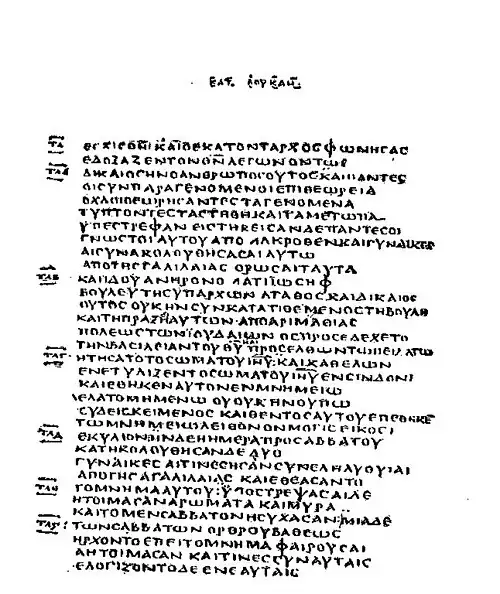 ΚΑΙΟΕΚΑΤΟΝΤΑΡΧΟΣΦΩΝΗΣΑΣ
ΕΔΟΞΑΖΕΝΤΟΝΘΝΛΕΓΩΝΟΝΤΩΣ
ΔΙΚΑΙΟΣΗΝΟΑΝΘΡΩΠΟΣΟΥΤΟΣΚΑΙΠΑΝΤΕΣ
ΟΙΣΥΝΠΑΡΑΓΕΝΟΜΕΝΟΙΕΠΙΘΕΩΡΕΙΑ
ΟΧΛΟΙΘΕΩΡΗΣΑΝΤΕΣΤΑΓΕΝΟΜΕΝΑ
ΤΥΠΤΟΝΤΕΣΤΑΣΤΗΘΗΚΑΙΤΑΜΕΤΩΠΑ
ΥΠΕΣΤΡΕΦΑΝ ΕΙΣΤΗΚΕΙΣΑΝΔΕΠΑΝΤΕΣΟΙ
ΓΝΩΣΤΟΙΑΥΤΟΥΑΠΟ ΜΑΚΡΟΘΕΝΚΑΙΓΥΝΑΙΚΕΣ
ΑΙΣΥΝΑΚΟΛΟΥΘΗΣΑΣΑΙΑΥΤΩ
ΑΠΟΤΗΣΓΑΛΙΛΑΙΑΣ ΟΡΩΣΑΙΤΑΥΤΑ
ΚΑΙΙΔΟΥΑΝΗΡΟΝΟΜΑΤΙΙΩΣΗΦ
ΒΟΥΛΕΥΤΗΣΥΠΑΡΧΩΝ ΑΓΑΘΟΣΚΑΙΔΙΚΑΙΟΣ
ΟΥΤΟΣ ΟΥΚΗΝΣΥΝΚΑΤΑΤΙΘΕΜΕΝΟΣΤΗΒΟΥΛΗ
ΚΑΙΤΗΠΡΑΞΕΙΑΥΤΩΝ ΑΠΟΑΡΙΜΑΘΙΑΣ
ΠΟΛΕΩΣΤΩΝΙΟΥΔΑΙΩΝ ΟΣΠΡΟΣΕΔΕΧΕΤΟ
ΤΗΝΒΑΣΙΛΕΙΑΝΤΟΥΘΥ ΠΡΟΣΕΛΘΩΝΤΩΠΕΙΛΑΤΩ
ΗΤΗΣΑΤΟΤΟΣΩΜΑΤΟΥΙΗΥ:ΚΑΙΚΑΘΕΛΩΝ
ΕΝΕΤΥΛΙΞΕΝΤΟΣΩΜΑΤΟΥΙΗΥΕΝΣΙΝΔΟΝΙ
ΚΑΙΕΘΗΚΕΝΑΥΤΟΝΕΝΜΝΗΜΕΙΩ
ΛΕΛΑΤΟΜΗΜΕΝΩ ΟΥΟΥΚΗΝΟΥΠΩ
ΟΥΔΕΙΣΚΕΙΜΕΝΟΣ ΚΑΙΘΕΝΤΟΣΑΥΤΟΥΕΠΕΘΗΚΕ
ΤΩΜΝΗΜΕΙΩΛΕΙΘΟΝΟΝΜΟΓΙΣΕΙΚΟΣΙ
ΕΚΥΛΙΟΝ:ΗΝΔΕΗΗΜΕΡΑΠΡΟΣΑΒΒΑΤΟΥ
ΚΑΤΗΚΟΛΟΥΘΗΣΑΝΔΕΔΥΟ
ΓΥΝΑΙΚΕΣ ΑΙΤΙΝΕΣΗΣΑΝΣΥΝΕΛΗΛΥΘΥΙΑΙ
ΑΠΟΤΗΣΓΑΛΙΛΑΙΑΣ ΚΑΙΕΘΕΑΣΑΝΤΟ
ΤΟΜΝΗΜΑΑΥΤΟΥ:ΥΠΟΣΤΡΕΨΑΣΑΙΔΕ
ΗΤΟΙΜΑΣΑΝΑΡΩΜΑΤΑ ΚΑΙΜΥΡΑ
ΚΑΙΤΟΜΕΝΣΑΒΒΑΤΟΝΗΣΥΧΑΣΑΝ:ΜΙΑΔΕ
ΤΩΝΣΑΒΒΑΤΩΝ ΟΡΘΡΟΥΒΑΘΕΩΣ
ΗΡΧΟΝΤΟΕΠΙΤΟΜΝΗΜΑ ΦΕΡΟΥΣΑΙ
ΑΗΤΟΙΜΑΣΑΝ ΚΑΙΤΙΝΕΣΣΥΝΑΥΤΑΙΣ
ΕΛΟΓΙΖΟΝΤΟΔΕ ΕΝΕΑΥΤΑΙΣ